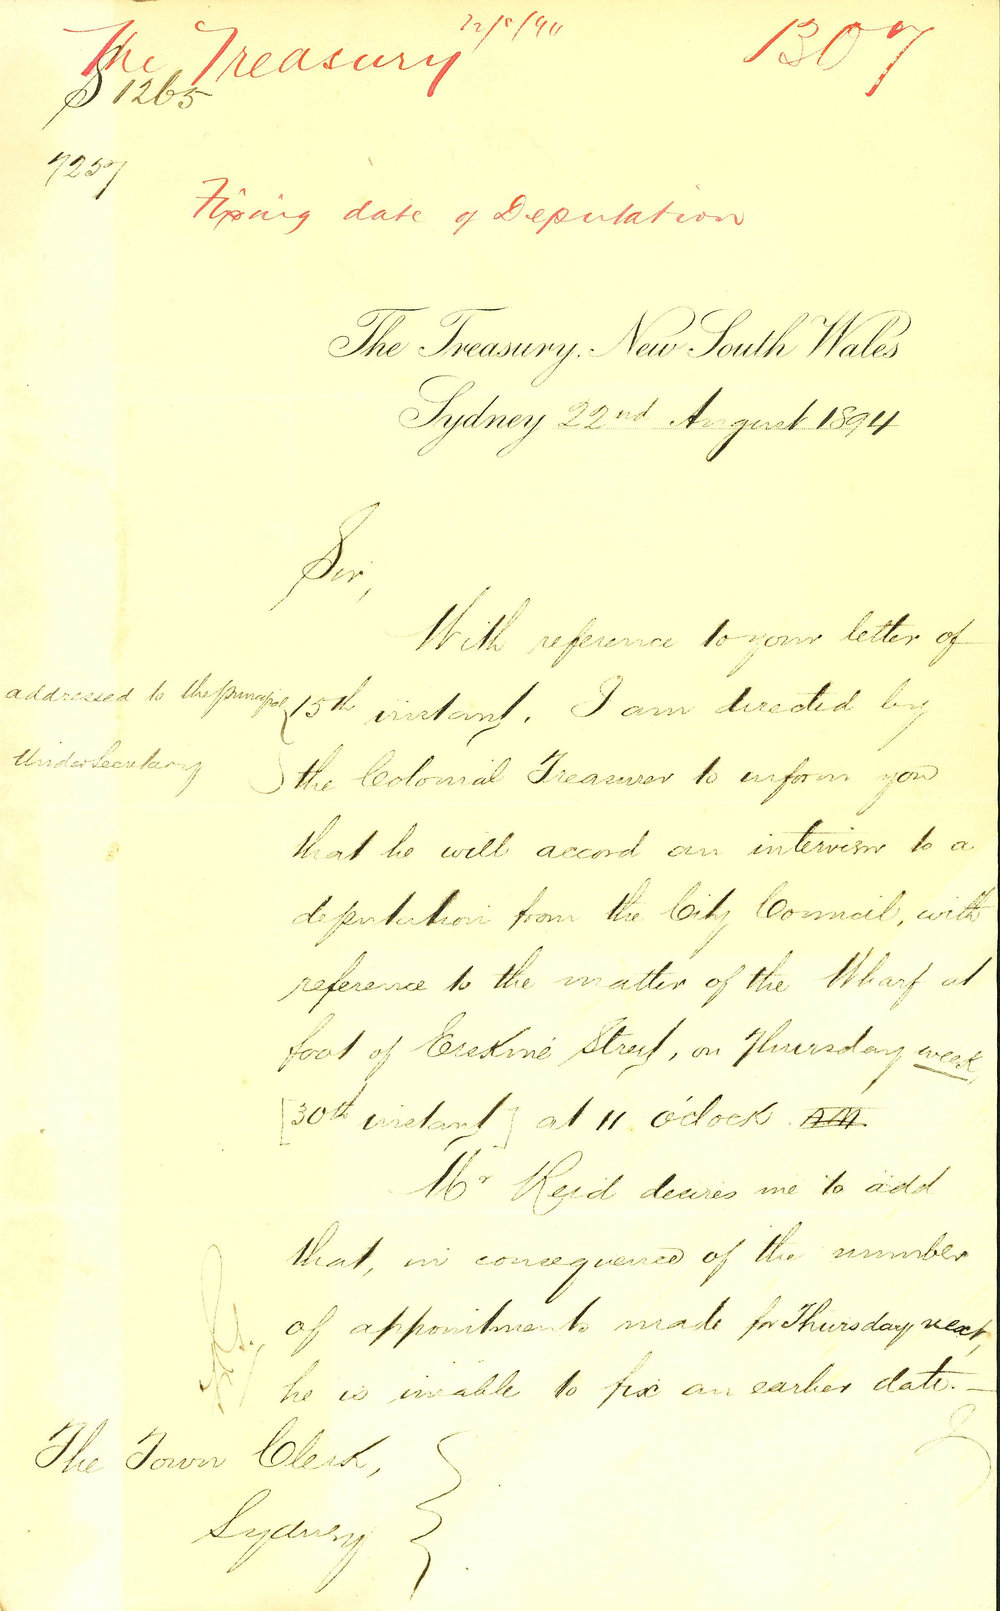 The Treasury 22/8/94 1307
S 1265
7257
Fixing date of Deputation
The Treasury, New South Wales
Sydney 22nd August 1894
Sir,
With reference to your letter of
addressed to the principal
Under Secretary
15th instant, I am directed by
the Colonial Treasurer to inform you
that he will accord an interview to a
deputation from the City Council, with
reference to the matter of the Wharf at
foot of Erskine Street, on Thursday week,
[30th instant] at 11 o'clock AM
Mr Reid desires me to add
that, in consequence of the number
of appointments made for Thursday next,
he is unable to fix an earlier date.
The Town Clerk,
Sydney